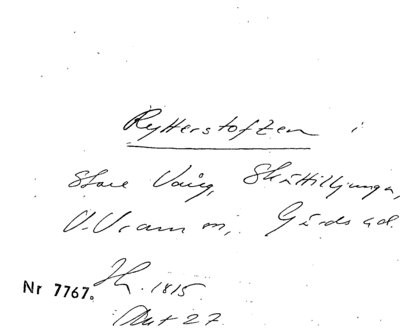 Rytterstoften i
Store Vaug, Skattilljunga,
V. Vram m, Gärds ad.
Nr 7767.
1815.
Akt 27